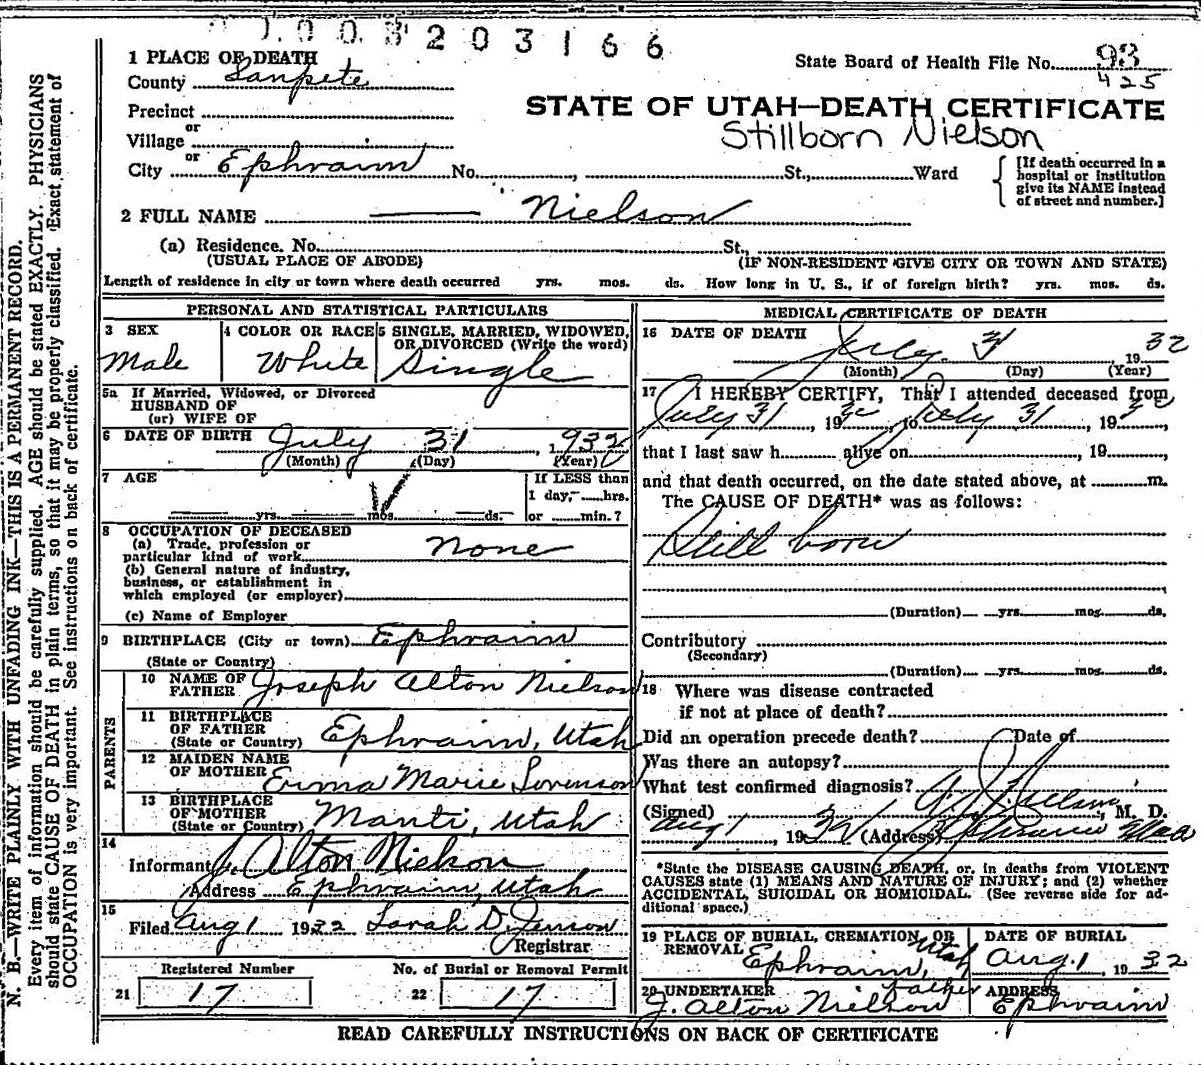 003203166
1 PLACE OF DEATH
State Board of Health File No. 93
425
County Sanpete
Precinct
or
Village
or
City Ephraim No. , St., Ward
STATE OF UTAH—DEATH CERTIFICATE
Stillborn Nielson
[If death occurred in a
hospital or institution
give its NAME instead
of street and number.]
2 FULL NAME —— Nielson
(a) Residence. No. St.,
(USUAL PLACE OF ABODE) (IF NON-RESIDENT GIVE CITY OR TOWN AND STATE)
Length of residence in city or town where death occurred yrs. mos. ds. How long in U. S., if of foreign birth? yrs. mos. ds.
PERSONAL AND STATISTICAL PARTICULARS
3 SEX
Male
4 COLOR OR RACE
White
5 SINGLE, MARRIED, WIDOWED,
OR DIVORCED (Write the word)
Single
5a If Married, Widowed, or Divorced
HUSBAND OF
(or) WIFE OF
6 DATE OF BIRTH July 31, 1932
(Month) (Day) (Year)
7 AGE
yrs. mos. ds.
If LESS than
1 day, hrs.
or min.?
8 OCCUPATION OF DECEASED
(a) Trade, profession or
particular kind of work none
(b) General nature of industry,
business, or establishment in
which employed (or employer)
(c) Name of Employer
9 BIRTHPLACE (City or town) Ephraim
(State or Country)
PARENTS
10 NAME OF
FATHER Joseph Alton Nielson
11 BIRTHPLACE
OF FATHER
(State or Country) Ephraim, Utah
12 MAIDEN NAME
OF MOTHER Erma Marie Sorenson
13 BIRTHPLACE
OF MOTHER
(State or Country) Manti, Utah
14
Informant J. Alton Nielson
Address Ephraim, Utah
15
Filed Aug 1 1932 Sarah D. Jenson
Registrar
Registered Number
21 17
No. of Burial or Removal Permit
22 17
MEDICAL CERTIFICATE OF DEATH
16 DATE OF DEATH July 31, 1932
(Month) (Day) (Year)
17 I HEREBY CERTIFY, That I attended deceased from
July 31, 1932, to July 31, 1932,
that I last saw h alive on , 19 ,
and that death occurred, on the date stated above, at m.
The CAUSE OF DEATH* was as follows:
Still born
(Duration) yrs. mos. ds.
Contributory
(Secondary)
(Duration) yrs. mos. ds.
18 Where was disease contracted
if not at place of death?
Did an operation precede death? Date of
Was there an autopsy?
What test confirmed diagnosis?
(Signed) , M. D.
Aug 1, 1932 (Address) Ephraim Utah
*State the DISEASE CAUSING DEATH, or, in deaths from VIOLENT
CAUSES state (1) MEANS AND NATURE OF INJURY; and (2) whether
ACCIDENTAL, SUICIDAL OR HOMICIDAL. (See reverse side for ad-
ditional space.)
19 PLACE OF BURIAL, CREMATION, OR
REMOVAL Ephraim, Utah
DATE OF BURIAL
Aug. 1, 1932
20 UNDERTAKER father
J. Alton Nielson
ADDRESS
Ephraim
READ CAREFULLY INSTRUCTIONS ON BACK OF CERTIFICATE
N. B.—WRITE PLAINLY WITH UNFADING INK—THIS IS A PERMANENT RECORD.
Every item of information should be carefully supplied. AGE should be stated EXACTLY. PHYSICIANS
should state CAUSE OF DEATH in plain terms, so that it may be properly classified. Exact statement of
OCCUPATION is very important. See instructions on back of certificate.